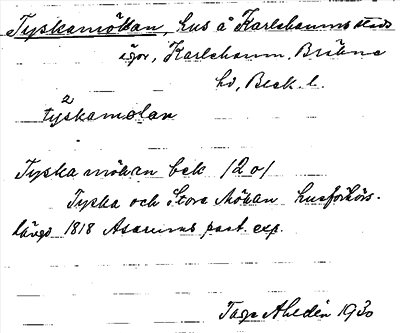 Tyskamöllan, hus å Karlshamns stads
ägor, Karlshamn, Bräkne
hd, Blek. l.
2
tyskamolan
Tyska möllan bek /2 o/
Tyska och Stora Möllan husförhörs-
längd 1818 Asarums past. exp.
Tage Ahldén 1930